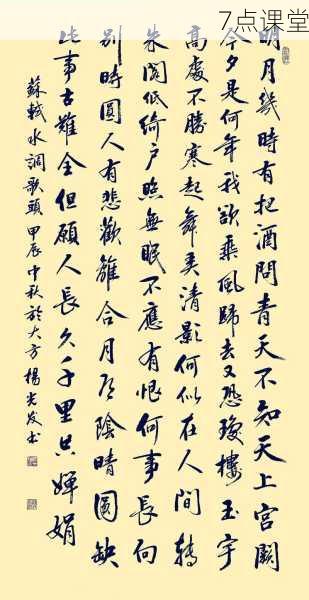 7点课堂
明月幾時有把酒問青天不知天上宮闕
今夕是何年我欲乘風歸去又恐瓊樓玉宇
高處不勝寒起舞弄清影何似在人間轉
朱閣低綺戶照無眠不應有恨何事長向
別時圓人有悲歡離合月有陰晴圓缺
此事古難全但願人長久千里共嬋娟
蘇軾水調歌頭甲辰中秋於大方楊光發書